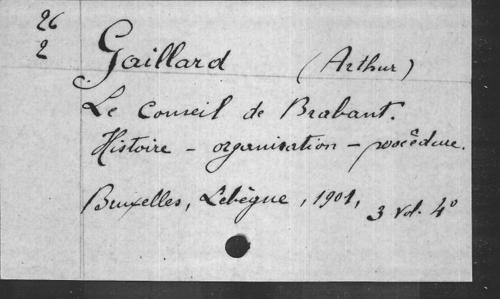 26
2
Gaillard (Arthur)
Le Conseil de Brabant.
Histoire - organisation - procédure.
Bruxelles, Lebègue, 1901, 3 vol. 4º